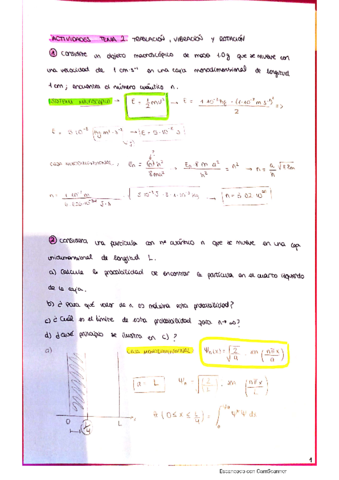 ACTIVIDADES TEMA 2: TRASLACIÓN, VIBRACIÓN Y ROTACIÓN
① Considere un objeto macroscópico de masa 1.0 g que se mueve con
una velocidad de 1 cm·s⁻¹ en una caja monodimensional de longitud
1 cm; encuentra el número cuántico n.
→ E = 1/2 mv² → E =
CAJA MONODIMENSIONAL: En = n²h²/8ma²
② Considera una partícula con nº cuántico n que se mueve en una caja
unidimensional de longitud L.
a) Calcula la probabilidad de encontrar la partícula en el cuarto izquierdo
de la caja.
b) ¿Para qué valor de n es máxima esta probabilidad?
c) ¿Cuál es el límite de esta probabilidad para n→∞?
d) ¿Qué principio se ilustra en c)?
a)
CAJA MONODIMENSIONAL
Ψn(x) = √2/a sen (nπx/a)
a = L
Ψn = √2/L sen (nπx/L)
0 L
1
Escaneado con CamScanner